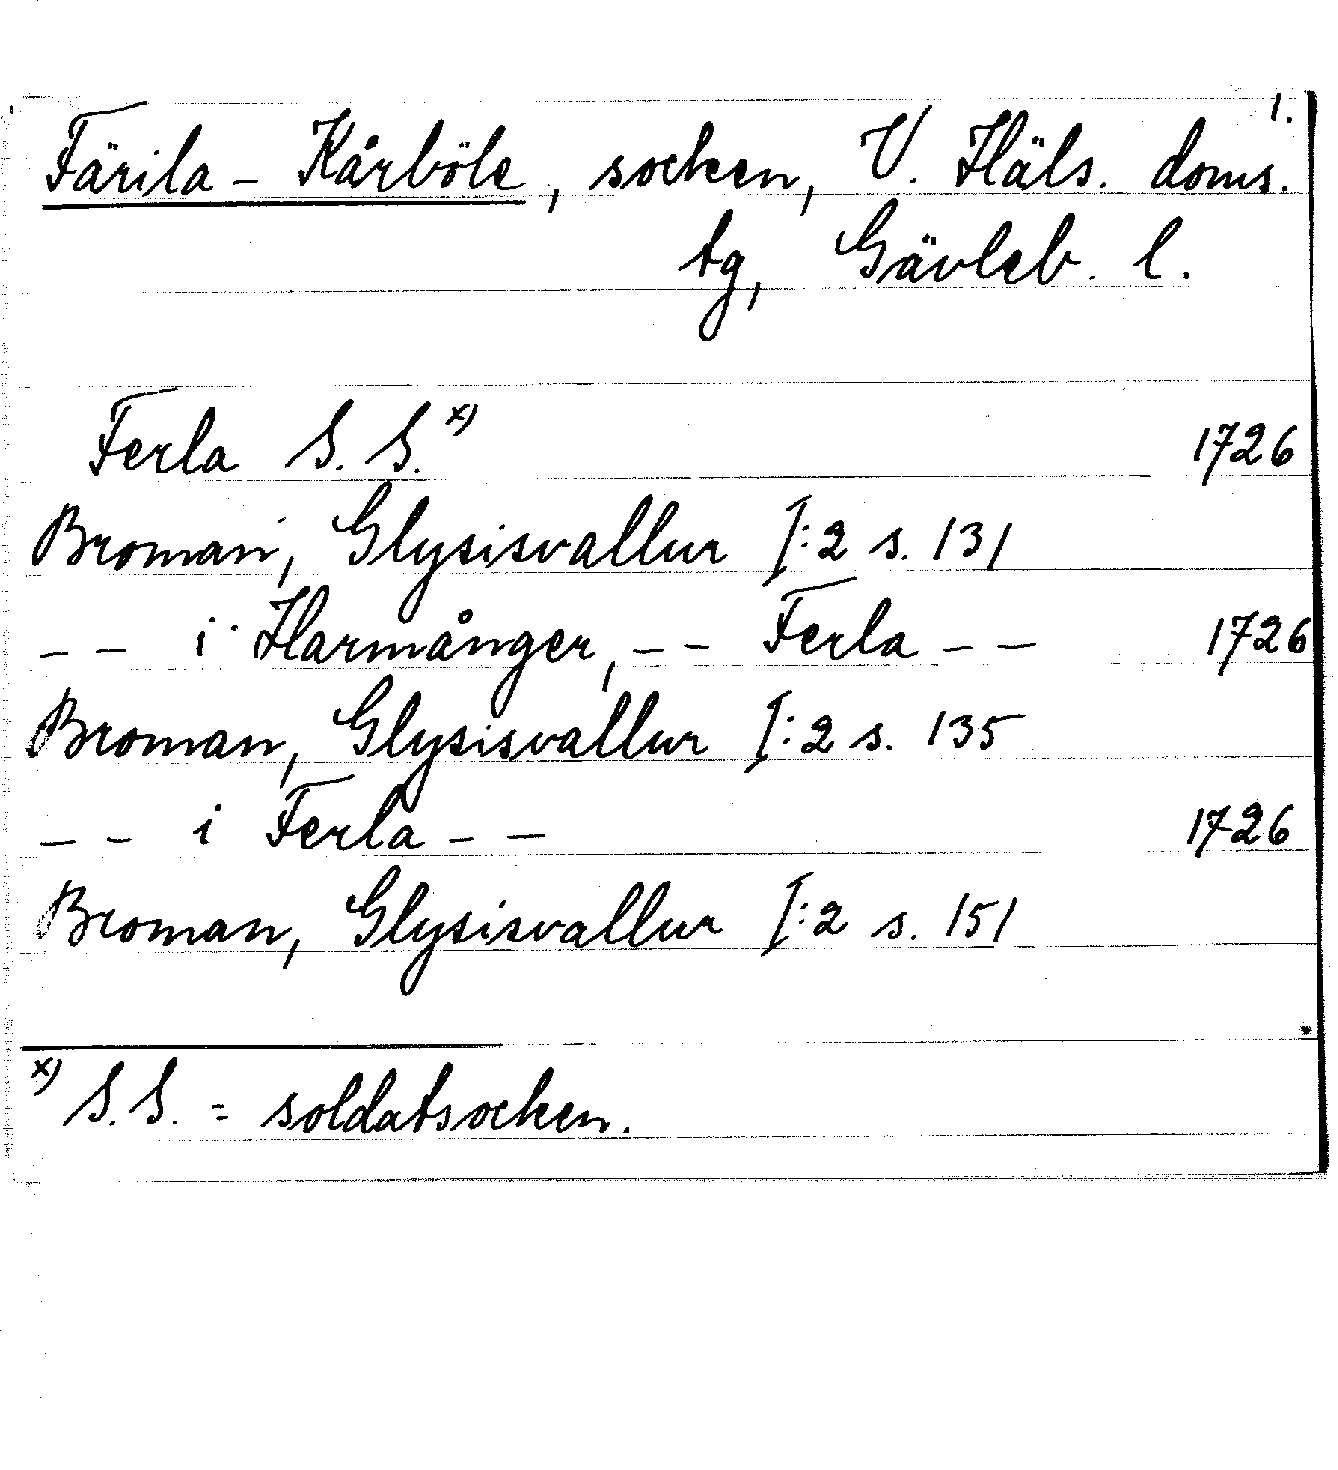 1.
Färila - Kårböle, socken, V. Häls. doms.
tg, Gävleb. l.
Ferla S. S.x) 1726
Broman, Glysisvallur I:2 s. 131
-- i Harmånger, -- Ferla -- 1726
Broman, Glysisvallur I:2 s. 135
-- i Ferla -- 1726
Broman, Glysisvallur I:2 s. 151
x) S.S. = soldatsocken.